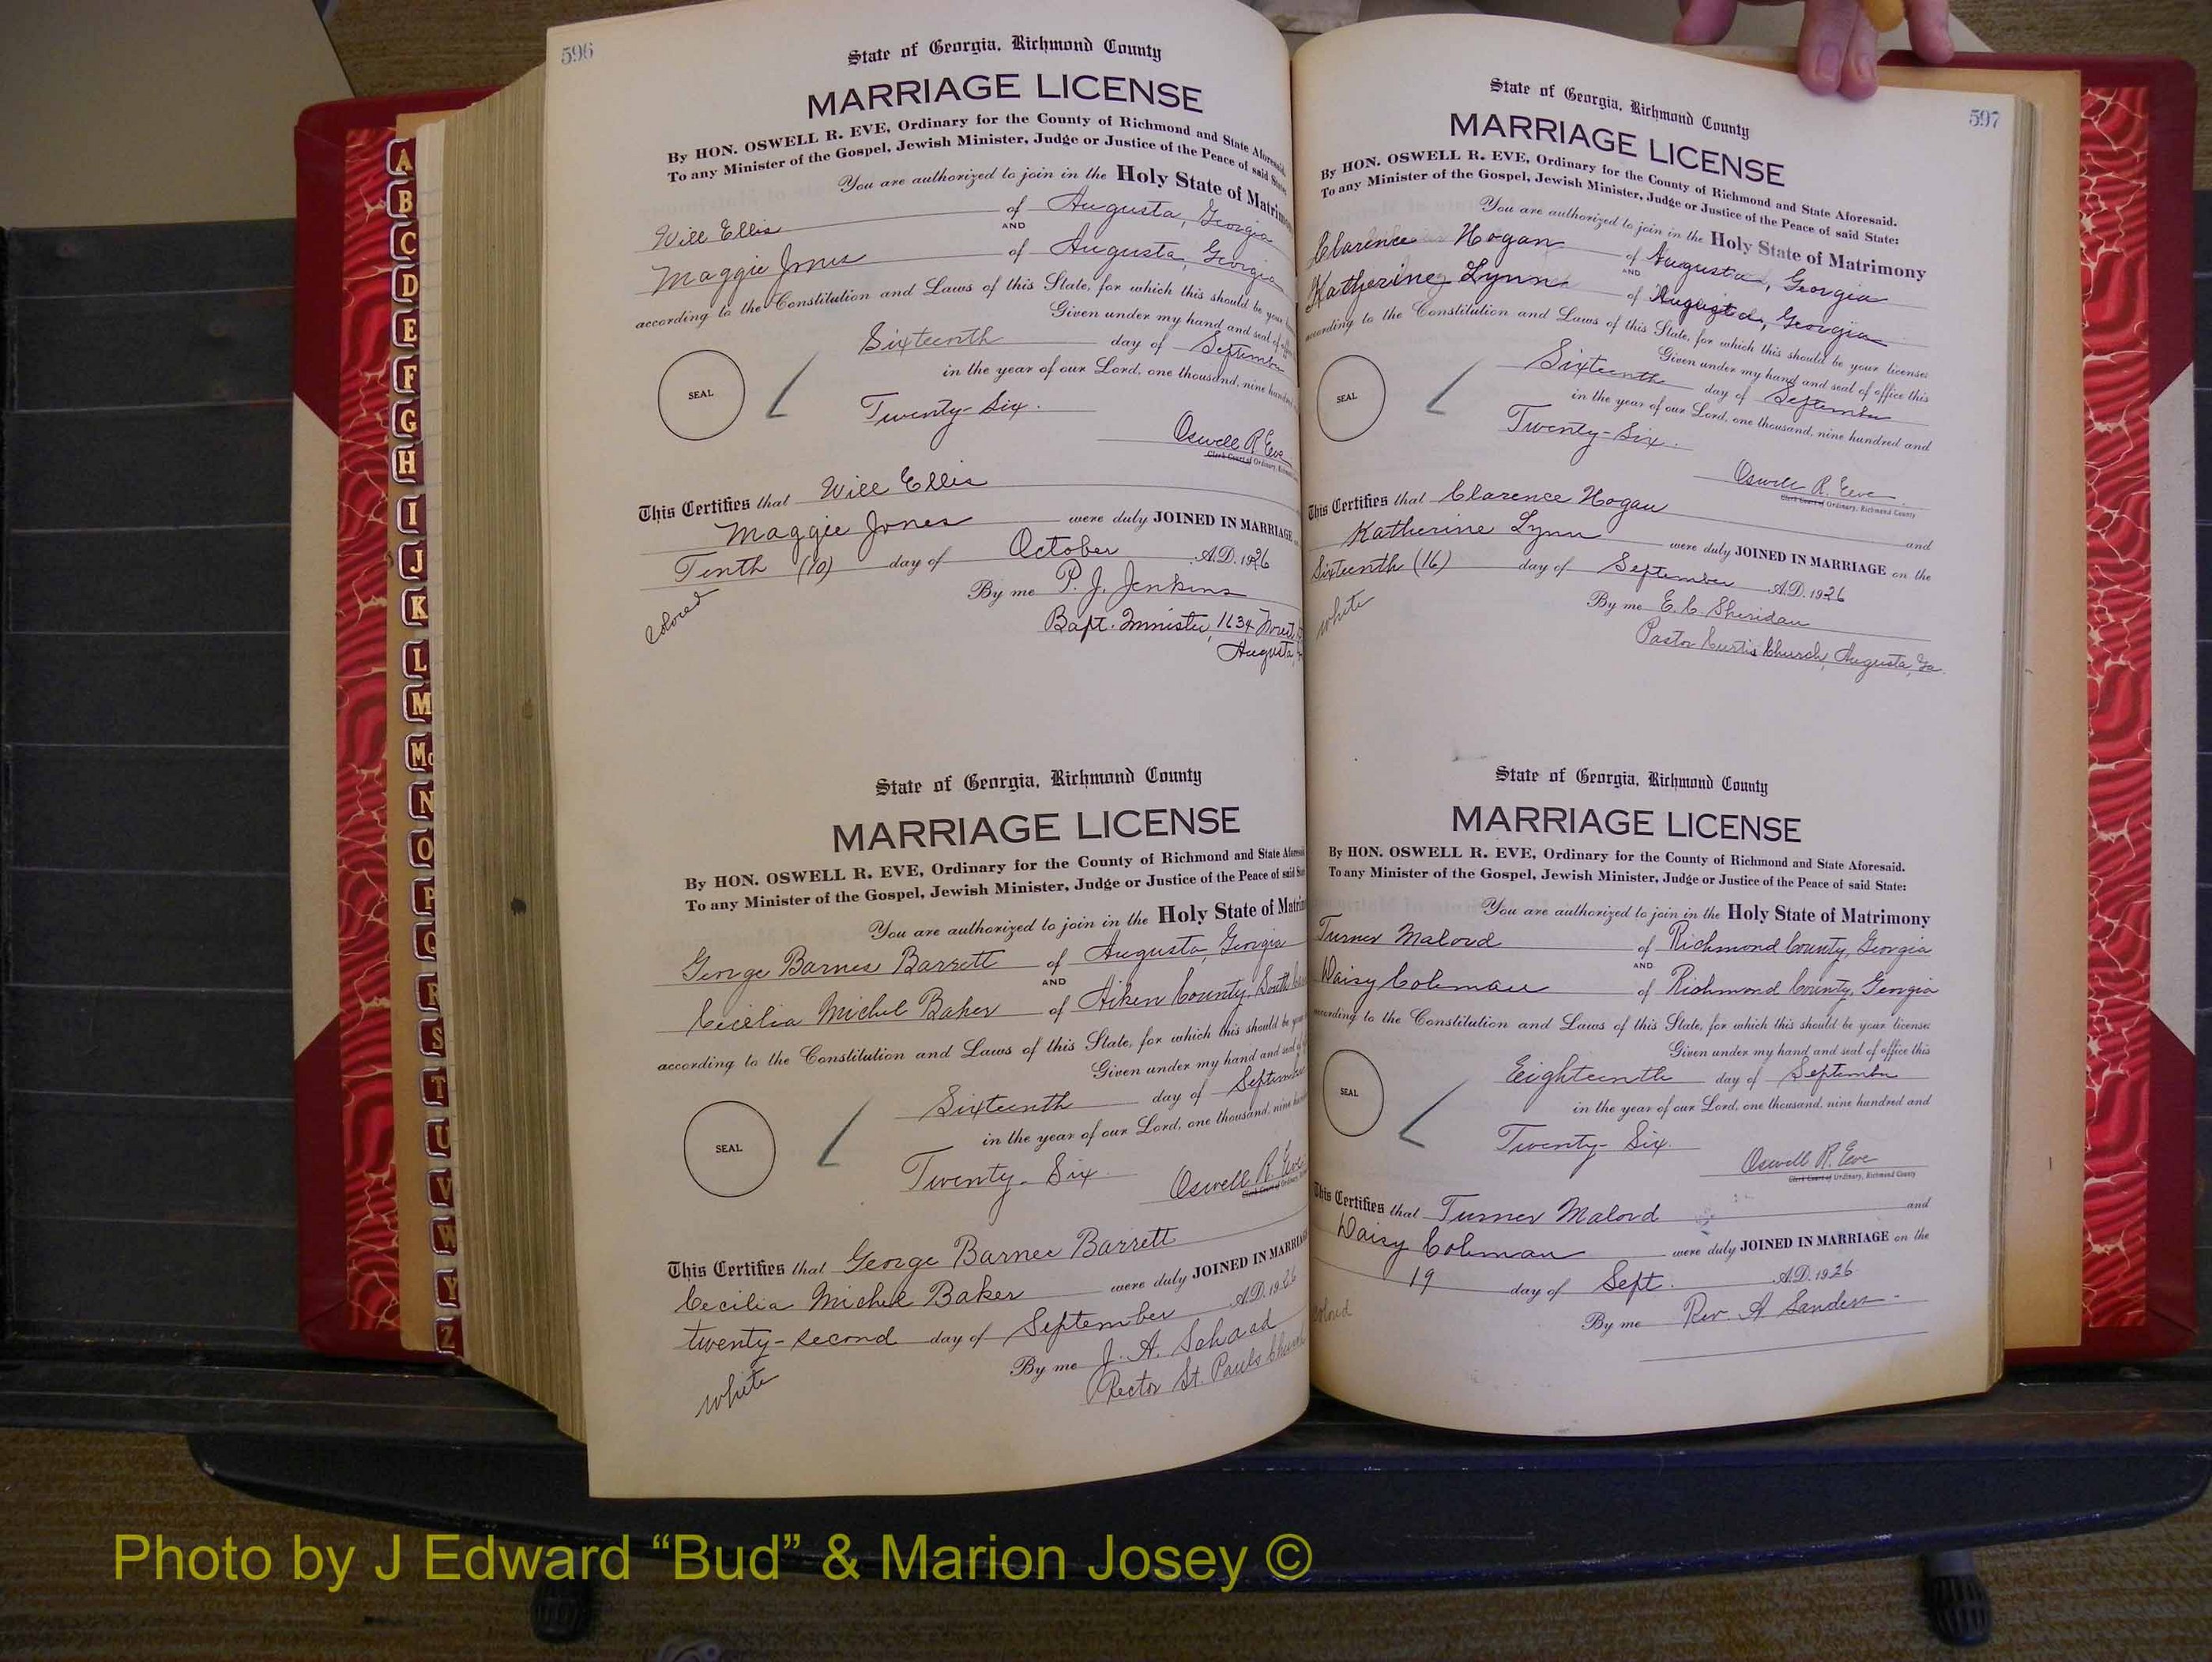 596
State of Georgia, Richmond County
MARRIAGE LICENSE
By HON. OSWELL R. EVE, Ordinary for the County of Richmond and State Aforesaid.
To any Minister of the Gospel, Jewish Minister, Judge or Justice of the Peace of said State:
You are authorized to join in the Holy State of Matrimony
Will Ellis of Augusta, Georgia
AND
Maggie Jones of Augusta, Georgia
according to the Constitution and Laws of this State, for which this should be your
Given under my hand and seal of
Sixteenth day of September
in the year of our Lord, one thousand, nine hundred
SEAL
Twenty-Six.
Oswell R. Eve
Clerk Court of Ordinary,
This Certifies that Will Ellis
Maggie Jones were duly JOINED IN MARRIAGE
Tenth (10) day of October A.D. 1926
By me P. J. Jenkins
colored
Bapt. Minister, 1634
Augusta,
State of Georgia, Richmond County
MARRIAGE LICENSE
By HON. OSWELL R. EVE, Ordinary for the County of Richmond and State Aforesaid
To any Minister of the Gospel, Jewish Minister, Judge or Justice of the Peace of said
You are authorized to join in the Holy State of
George Barnes Barrett of Augusta, Georgia
AND
Cecilia Michel Baker of Aiken County, South
according to the Constitution and Laws of this State, for which this should be your
Given under my hand and seal of
Sixteenth day of September
in the year of our Lord, one thousand, nine
SEAL
Twenty-Six.
Oswell R. Eve
Clerk Court of Ordinary,
This Certifies that George Barnes Barrett
Cecilia Michel Baker were duly JOINED IN MARRIAGE
twenty-second day of September A.D. 1926
By me J. A. Schaad
white
Rector St. Pauls Church
597
State of Georgia, Richmond County
MARRIAGE LICENSE
By HON. OSWELL R. EVE, Ordinary for the County of Richmond and State Aforesaid.
To any Minister of the Gospel, Jewish Minister, Judge or Justice of the Peace of said State:
You are authorized to join in the Holy State of Matrimony
Clarence Hogan of Augusta, Georgia
AND
Katherine Lynn of Augusta, Georgia
according to the Constitution and Laws of this State, for which this should be your license:
Given under my hand and seal of office this
Sixteenth day of September
in the year of our Lord, one thousand, nine hundred and
SEAL
Twenty-Six.
Oswell R. Eve
Clerk Court of Ordinary, Richmond County
This Certifies that Clarence Hogan and
Katherine Lynn were duly JOINED IN MARRIAGE on the
Sixteenth (16) day of September A.D. 1926
By me E. C. Sheridan
white
Pastor Curtis Church, Augusta, Ga.
State of Georgia, Richmond County
MARRIAGE LICENSE
By HON. OSWELL R. EVE, Ordinary for the County of Richmond and State Aforesaid.
To any Minister of the Gospel, Jewish Minister, Judge or Justice of the Peace of said State:
You are authorized to join in the Holy State of Matrimony
Turner Malord of Richmond County, Georgia
AND
Daisy Coleman of Richmond County, Georgia
according to the Constitution and Laws of this State, for which this should be your license:
Given under my hand and seal of office this
Eighteenth day of September
in the year of our Lord, one thousand, nine hundred and
SEAL
Twenty-Six.
Oswell R. Eve
Clerk Court of Ordinary, Richmond County
This Certifies that Turner Malord and
Daisy Coleman were duly JOINED IN MARRIAGE on the
19 day of Sept. A.D. 1926
colored
By me Rev. A Sanders
A
B
C
D
E
F
G
H
I
J
K
L
M
Mc
N
O
P
Q
R
S
T
U
V
W
Y
Z
Photo by J Edward “Bud” & Marion Josey ©